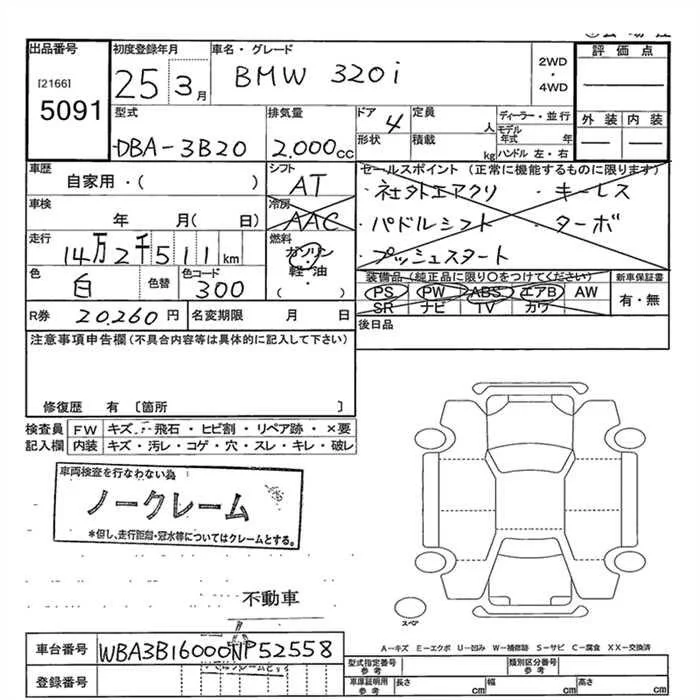 出品番号 初度登録年月 車名・グレード 評価点
[2166] 25 3月 BMW 320i 2WD・4WD
5091
型式 排気量 ドア 4 定員 人 ディーラー・並行 外装 内装
DBA-3B20 2.000cc 形状 積載 kg モデル年式 年 ハンドル 左・右
車歴 シフト セールスポイント (正常に機能するものに限ります)
自家用・( ) AT ・社外エアクリ ・キーレス
車検 冷房 ・パドルシフト ・ターボ
年 月( 日) AAC ・プッシュスタート
走行 燃料
14万2千511km ガソリン・軽・油・( )
色 色替 色コード 装備品(純正品に限り○をつけてください) 新車保証書
白 300 PS PW ABS エアB AW 有・無
SR ナビ TV カワ
R券 20,260円 名変期限 月 日 後日品
注意事項申告欄(不具合内容等は具体的に記入して下さい)
修復歴 有 〔箇所 〕
検査員 FW キズ・飛石・ヒビ割・リペア跡・×要
記入欄 内装 キズ・汚レ・コゲ・穴・スレ・キレ・破レ
車両検査を行なわない為
ノークレーム
*但し、走行距離・冠水等についてはクレームとする。
不動車
スペア
A-キズ E-エクボ U-凹み W-補修跡 S-サビ C-腐食 XX-交換済
車台番号 WBA3B16000NP52558 型式指定番号 参考 類別区分番号 参考
登録番号 車庫証明用 参考 長さ cm 幅 cm 高さ cm